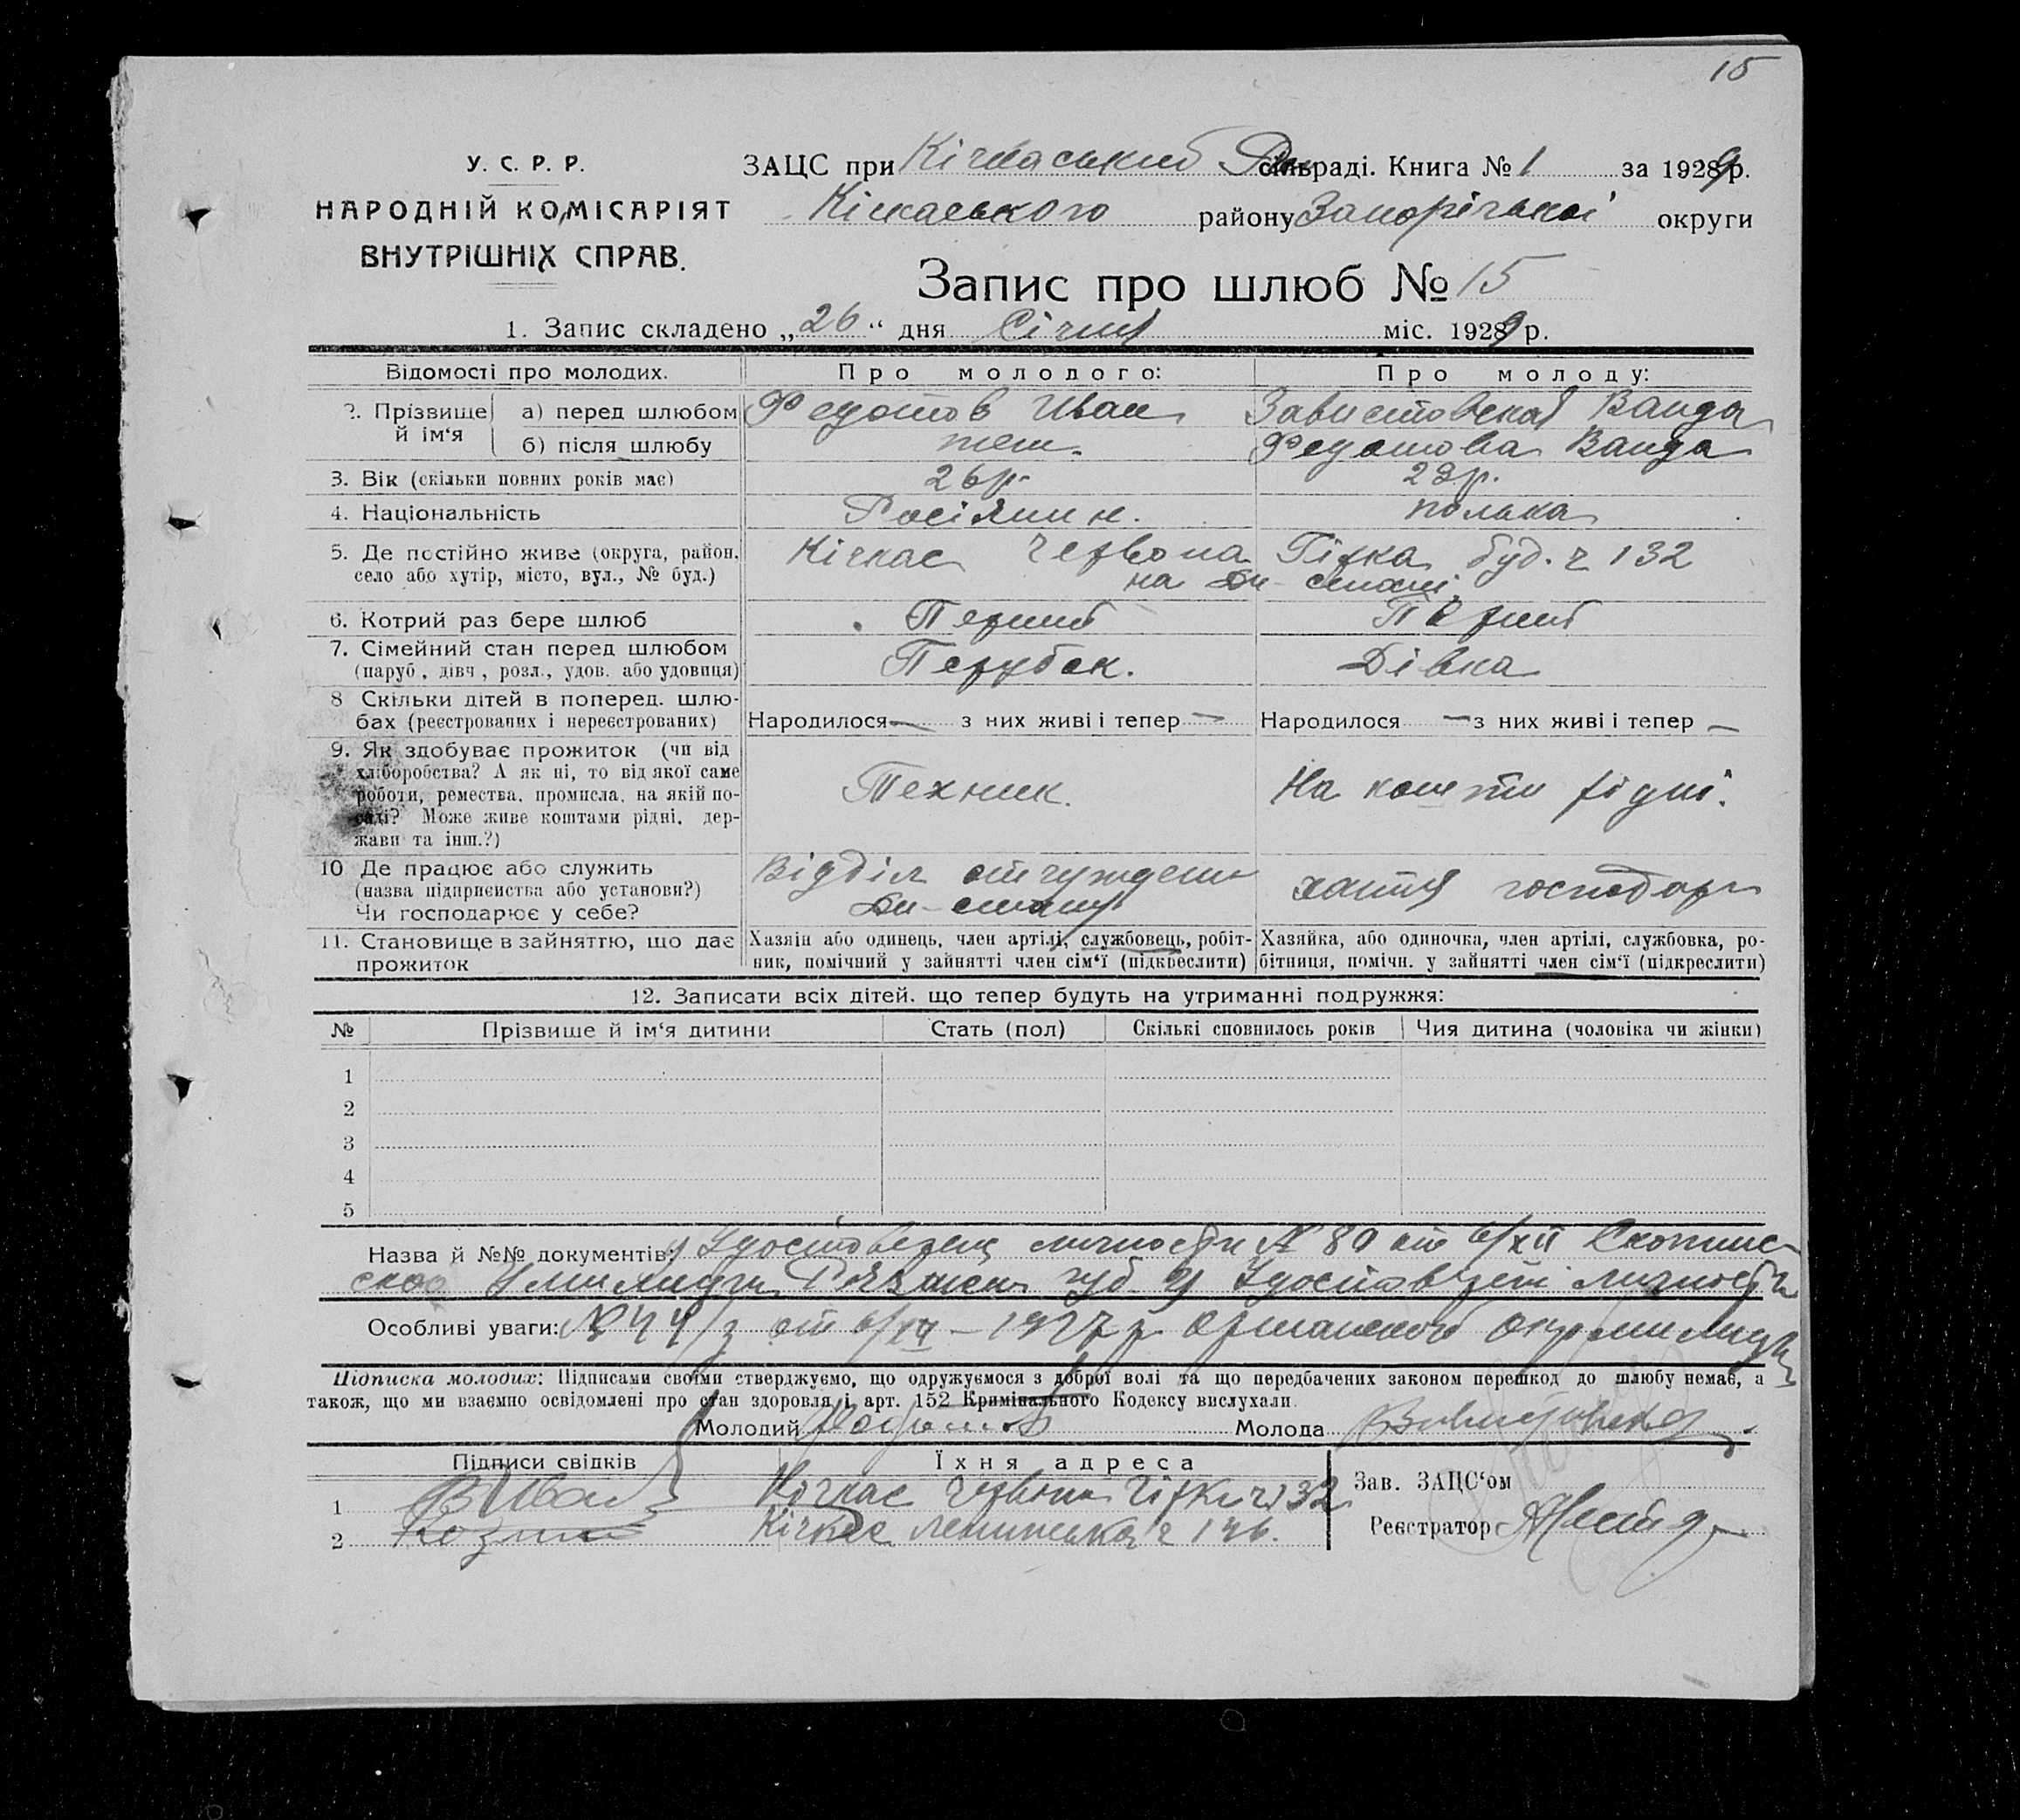 15
У. С. Р. Р.
НАРОДНІЙ КОМІСАРІЯТ
ВНУТРІШНІХ СПРАВ.
ЗАЦС при Кічкаський сільраді. Книга № 1 за 1929 р.
Кічкаського району Запорізької округи
Запис про шлюб № 15
1. Запис складено „26“ дня Січня міс. 1929 р.
Відомості про молодих.
Про молодого:
Про молоду:
2. Прізвище й ім‘я
а) перед шлюбом
Федотов Иван
Завистовская Ванда
б) після шлюбу
теж.
Федотова Ванда
3. Вік (скільки повних років має)
26 р.
22 р.
4. Національність
Росіянин.
полька
5. Де постійно живе (округа, район, село або хутір, місто, вул., № буд.)
Кічкас Червона Гірка буд. ч 132
на
6. Котрий раз бере шлюб
Перший
Перший
7. Сімейний стан перед шлюбом
(паруб., дівч., розл., удов. або удовиця)
Парубок.
Дівка
8 Скільки дітей в поперед. шлю-
бах (реєстрованих і нереєстрованих)
Народилося — з них живі і тепер —
Народилося — з них живі і тепер —
9. Як здобуває прожиток (чи від
хліборобства? А як ні, то від якої саме
роботи, ремества, промисла, на якій по-
саді? Може живе коштами рідні, дер-
жави та інш.?)
Техник.
На кошти рідні.
10 Де працює або служить
(назва підприємства або установи?)
Чи господарює у себе?
Відділ отчужден
хатня господар
11. Становище в зайняттю, що дає
прожиток
Хазяїн або одинець, член артілі, службовець, робіт-
ник, помічний у зайнятті член сім‘ї (підкреслити)
Хазяйка, або одиночка, член артілі, службовка, ро-
бітниця, помічн. у зайнятті член сім‘ї (підкреслити)
12. Записати всіх дітей, що тепер будуть на утриманні подружжя:
№ Прізвище й ім‘я дитини Стать (пол) Скількі сповнилось років Чия дитина (чоловіка чи жінки)
1
2
3
4
5
Назва й №№ документів: Удостоверен личности № 80 от 6/XII Скопинс-
ской Умилиции Рязанск губ. Удостоверен личности
Особливі уваги: 1927 р. Оршанской Окрмилиции
Підписка молодих: Підписами своїми стверджуємо, що одружуємося з доброї волі та що передбачених законом перешкод до шлюбу немає, а
також, що ми взаємно освідомлені про стан здоровля і арт. 152 Кримінального Кодексу вислухали.
Молодий Федотов Молода
Підписи свідків
Їхня адреса
1 Кічкас Червона Гірка ч 132
2 Кічкас Ленинська ч 146.
Зав. ЗАЦС‘ом
Реєстратор